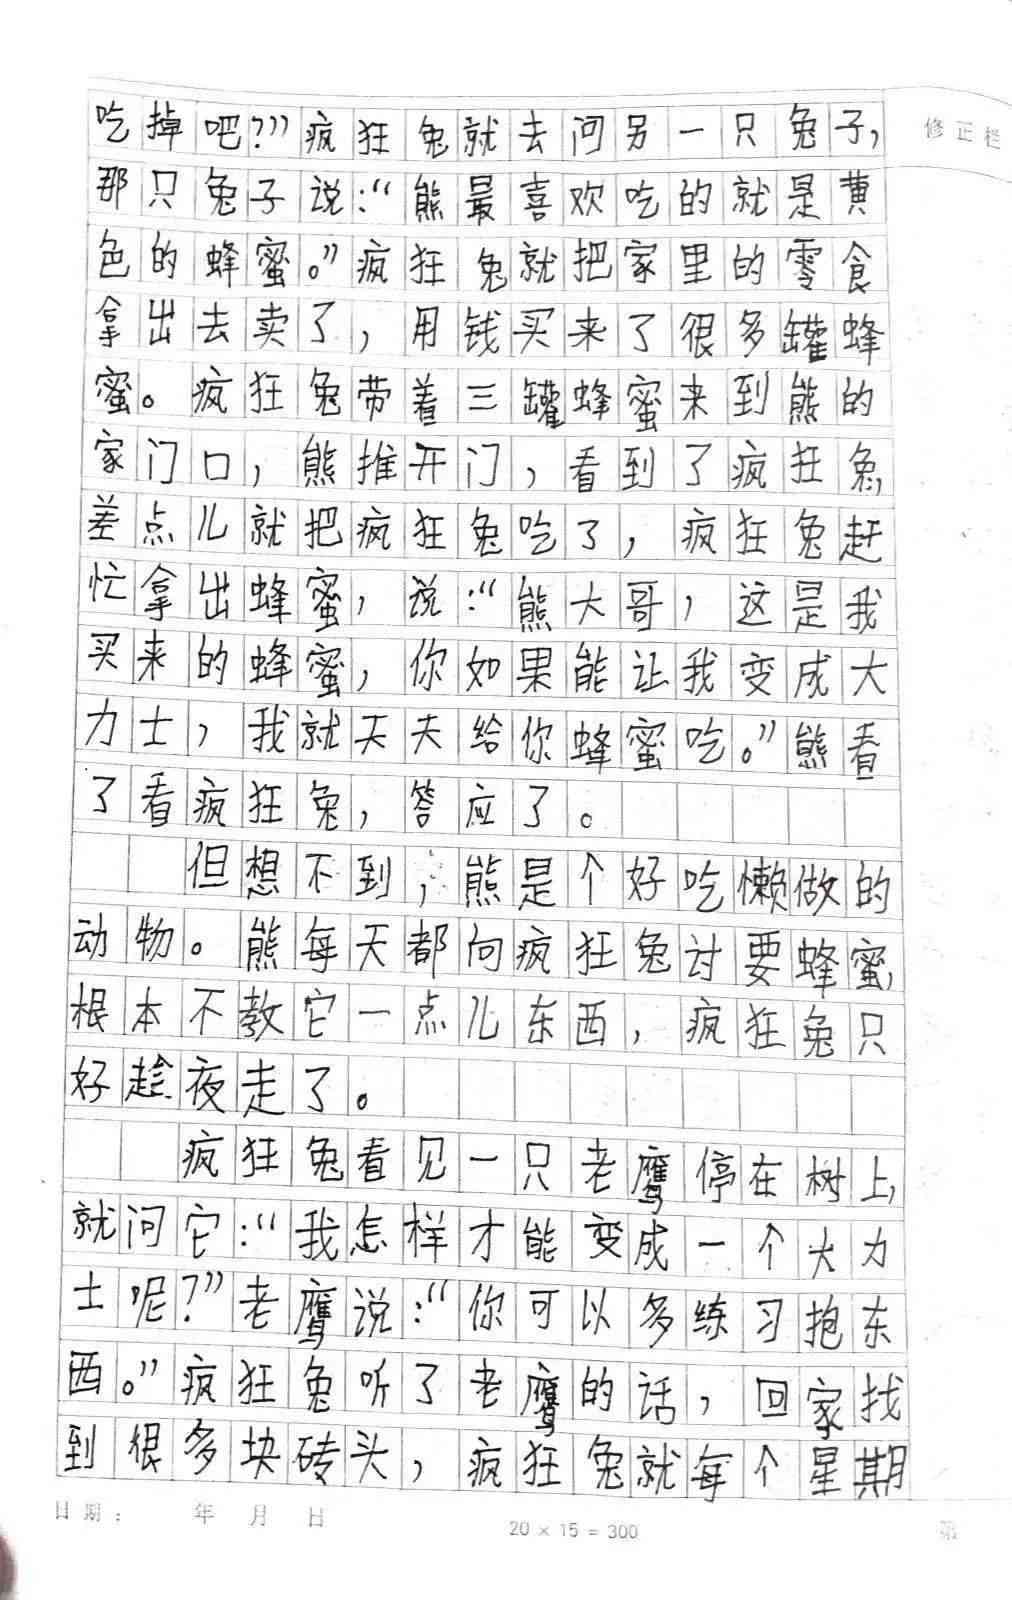 吃掉吧?”疯狂兔就去问另一只兔子,
修正栏
那只兔子说:“熊最喜欢吃的就是黄
色的蜂蜜。”疯狂兔就把家里的零食
拿出去卖了,用钱买来了很多罐蜂
蜜。疯狂兔带着三罐蜂蜜来到熊的
家门口,熊推开门,看到了疯狂兔,
差点儿就把疯狂兔吃了,疯狂兔赶
忙拿出蜂蜜,说:“熊大哥,这是我
买来的蜂蜜,你如果能让我变成大
力士,我就天天给你蜂蜜吃。”熊看
了看疯狂兔,答应了。
但想不到,熊是个好吃懒做的
动物。熊每天都向疯狂兔讨要蜂蜜,
根本不教它一点儿东西,疯狂兔只
好趁夜走了。
疯狂兔看见一只老鹰停在树上,
就问它:“我怎样才能变成一个大力
士呢?”老鹰说:“你可以多练习抱东
西。”疯狂兔听了老鹰的话,回家找
到很多块砖头,疯狂兔就每个星期
日期: 年 月 日
20 × 15 = 300
第